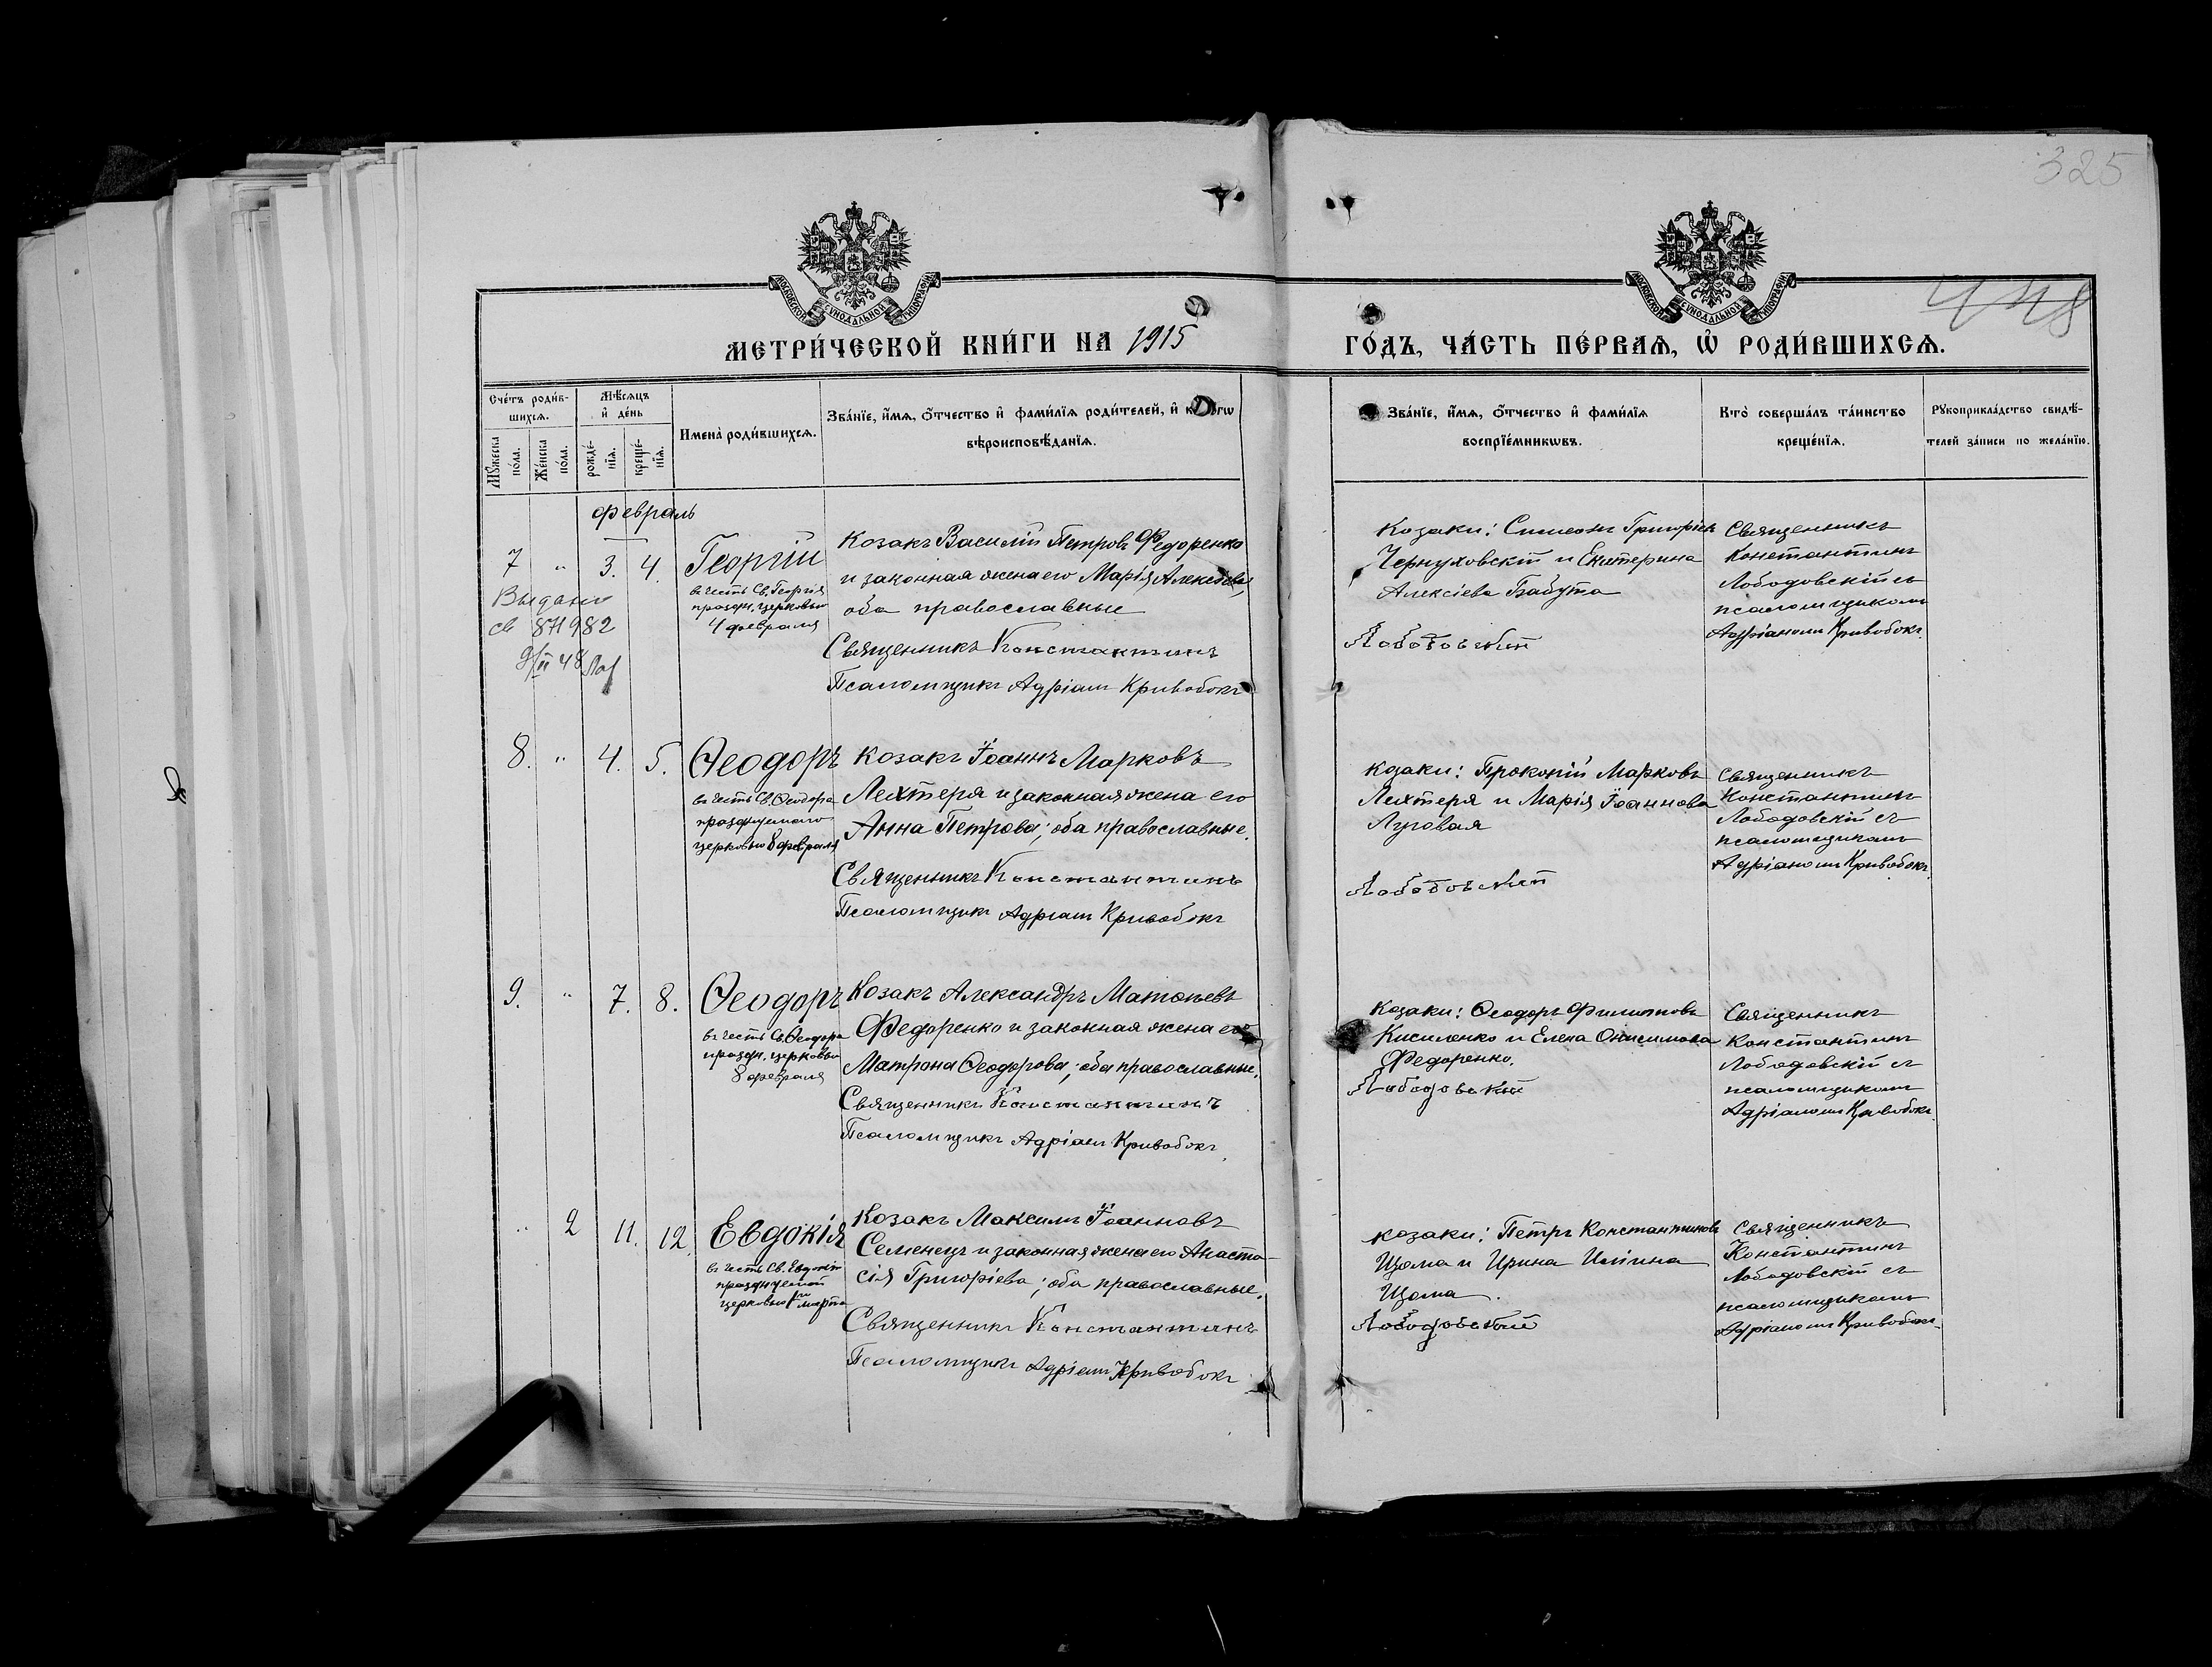 325
МОСКОВСКОЙ СѴНОДАЛЬНОЙ ТИПОГРАФІИ
МОСКОВСКОЙ СѴНОДАЛЬНОЙ ТИПОГРАФІИ
МЕТРИ́ЧЕСКОЙ КНИ́ГИ НА 1915
ГО́ДЪ, ЧА́СТЬ ПЕ́РВАѦ, Ѡ РОДИ́ВШИХСѦ.
Сче́тъ роди́в-
шихсѧ.
Мѣ́сѧцъ
и҆ де́нь
Мꙋ́жеска
по́ла.
Же́нска
по́ла.
рожде́-
нїѧ.
креще́-
нїѧ.
Имена̀ роди́вшихсѧ.
Зва́нїе, и҆́мѧ, ѻ҆́тчество и҆ фами́лїѧ роди́телей, и҆
вѣроисповѣ́данїѧ.
Зва́нїе, и҆́мѧ, ѻ҆́тчество и҆ фами́лїѧ
воспрїе́мникѡвъ.
Кто̀ соверша́лъ та́инство
креще́нїѧ.
Рꙋкоприкла́дство свидѣ́-
телей за́писи по жела́нїю.
февраль
7 " 3. 4. Георгій
въ честь Св. Георгія
праздн. церковью
4 февраля
Выдано
св 871982
Козакъ Василій Петровъ Федоренко
и законная жена его Марія Алексѣева,
оба православные
Священникъ Константинъ
Псаломщикъ Адріанъ Кривобокъ
Козаки: Симеонъ Григоріевъ
Чернуховскій и Екатерина
Алексіева Бабута
Лободовскій
Священникъ
Константинъ
Лободовскій съ
псаломщикомъ
Адріаномъ Кривобокъ.
8. " 4. 5. Ѳеодоръ
въ честь Св. Ѳеодора
празднуемаго
церковью 8 февраля
Козакъ Іоаннъ Марковъ
Лехтеря и законная жена его
Анна Петрова; оба православные.
Священникъ Константинъ
Псаломщикъ Адріанъ Кривобокъ
Козаки: Прокопій Марковъ
Лехтеря и Марія Іоаннова
Луговая
Лободовскій
Священникъ
Константинъ
Лободовскій съ
псаломщикомъ
Адріаномъ Кривобокъ.
9. " 7. 8. Ѳеодоръ
въ честь Св. Ѳеодора
праздн. церковью
8 февраля
Козакъ Александръ Матѳіевъ
Федоренко и законная жена его
Матрона Ѳеодорова; оба православные.
Священникъ Константинъ
Псаломщикъ Адріанъ Кривобокъ.
Козаки: Ѳеодоръ Филимоновъ
Кисиленко и Елена Онисимова
Федоренко.
Лободовскій
Священникъ
Константинъ
Лободовскій съ
псаломщикомъ
Адріаномъ Кривобокъ.
" 2 11. 12. Евдокія
въ честь Св. Евдокіи
празднуемой
церковью 1го марта
Козакъ Максимъ Іоанновъ
Семенецъ и законная жена его Анаста-
сія Григоріева; оба православные.
Священникъ Константинъ
Псаломщикъ Адріанъ Кривобокъ
Козаки: Петръ Константиновъ
Щома и Ирина Иліина
Щома.
Лободовскій
Священникъ
Константинъ
Лободовскій съ
псаломщикомъ
Адріаномъ Кривобокъ.